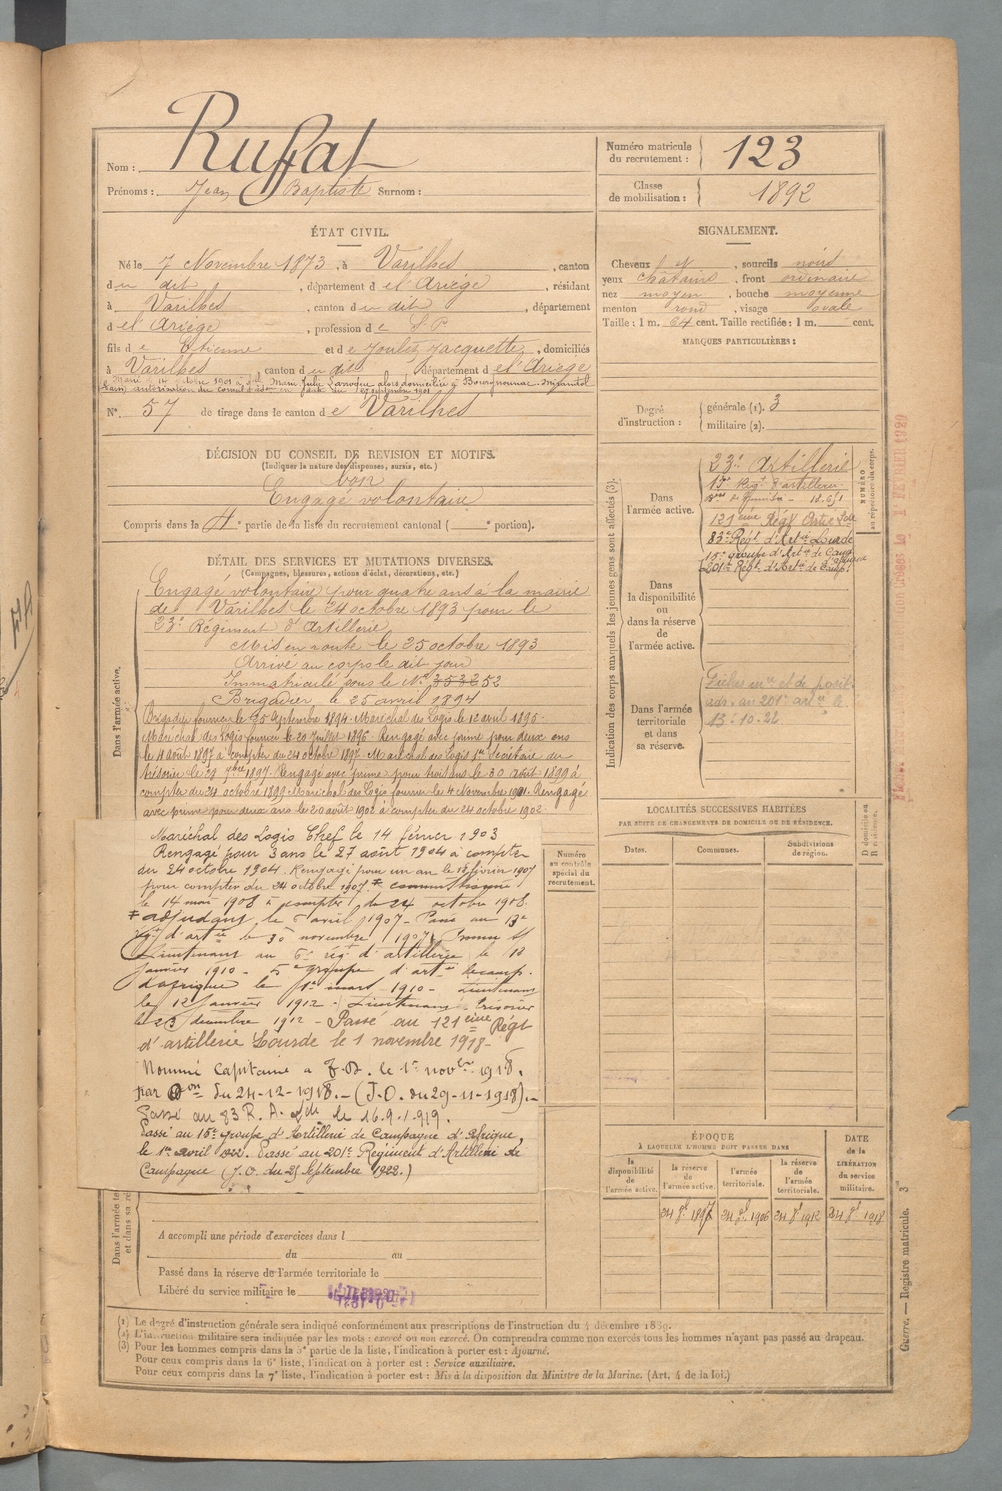 Nom : Ruffat
Prénoms : Jean Baptiste Surnom :
Numéro matricule du recrutement : 123
Classe de mobilisation : 1892
ÉTAT CIVIL.
Né le 7 Novembre 1873, à Varilhes, canton
du dit, département de l'Ariège, résidant
à Varilhes, canton du dit, département
de l'Ariège, profession de
fils de Etienne et de Joulés Jacquette, domiciliés
à Varilhes, canton du dit, département de l'Ariège
Marié le 14 octobre 1901 à Marie Julie alors domiciliée à
N° 57 de tirage dans le canton de Varilhes
SIGNALEMENT.
Cheveux, sourcils noirs
yeux châtains, front ordinaire
nez moyen, bouche moyenne
menton rond, visage ovale
Taille : 1 m. 64 cent. Taille rectifiée : 1 m. cent.
MARQUES PARTICULIÈRES :
Degré d'instruction : générale (1). 3
militaire (2).
DÉCISION DU CONSEIL DE REVISION ET MOTIFS.
(Indiquer la nature des dispenses, sursis, etc.)
bon
Engagé volontaire
Compris dans la 4e partie de la liste du recrutement cantonal ( e portion).
DÉTAIL DES SERVICES ET MUTATIONS DIVERSES.
(Campagnes, blessures, actions d'éclat, décorations, etc.)
Dans l'armée active.
Engagé volontaire pour quatre ans à la mairie
de Varilhes le 24 octobre 1893 pour le
23e Régiment d'Artillerie
Mis en route le 25 octobre 1893
Arrivé au corps le dit jour
Immatriculé sous le N° 52
Brigadier le 25 avril 1894
Brigadier fourrier le 25 Septembre 1894. Maréchal des Logis le 12 avril 1895.
Maréchal des Logis fourrier le 20 Juillet 1896. Rengagé avec prime pour deux ans
le 14 août 1897 à compter du 24 octobre 1897. Maréchal des Logis 1er Secrétaire du
trésorier le 29 7bre 1897. Rengagé avec prime pour trois ans le 30 août 1899 à
compter du 24 octobre 1899. Maréchal des Logis fourrier le 4 Novembre 1901. Rengagé
avec prime pour deux ans le 20 août 1902 à compter du 24 octobre 1902
Maréchal des Logis Chef le 14 février 1903
Rengagé pour 3 ans le 27 août 1904 à compter
du 24 octobre 1904. Rengagé pour un an le 18 février 1907
pour compter du 24 octobre 1907. * commissionné
le 14 mai 1908 à compter du 24 octobre 1908.
* adjudant le avril 1907 - Passé au 13e
régt d'artie le 30 novembre 1907. Promu S/
Lieutenant au 6e rég. d'artillerie le 10
janvier 1910 - 5e groupe d'artie de camp.
d'afrique le 1er mars 1910 - Lieutenant
le 12 Janvier 1912 - Lieutenant Trésorier
le 23 décembre 1912 - Passé au 121ème Régt
d'artillerie Lourde le 1 novembre 1918 -
Nommé Capitaine a T.D. le 1er novbre 1918.
par Don du 24-12-1918. - (J.O. du 29-11-1918).-
Passé au 83 R.A. Lde le 16.9.1919.
Passé au 15e groupe d'Artillerie de Campagne d'Afrique,
le 1er avril 1922. Passé au 201e Régiment d'Artillerie de
Campagne (J.O. du 25 Septembre 1922.)
Dans l'armée te
et dans sa ré
A accompli une période d'exercices dans l
du au
Passé dans la réserve de l'armée territoriale le
Libéré du service militaire le
Indication des corps auxquels les jeunes gens sont affectés (3).
NUMÉRO au répertoire du corps.
Dans l'armée active.
23e Artillerie
13e Régt d'artillerie
121ème Régt Artie Lde
83e Régt d'Artie Lourde
15e groupe d'Artie de Camp. d'Afrique
201e Régt d'Artie de Camp.
Dans la disponibilité ou dans la réserve de l'armée active.
Dans l'armée territoriale et dans sa réserve.
Fiches et de posit.
adr. au 201e artie le
13-10-22
LOCALITÉS SUCCESSIVES HABITÉES
PAR SUITE DE CHANGEMENTS DE DOMICILE OU DE RÉSIDENCE.
Numéro au contrôle spécial du recrutement.
Dates.
Communes.
Subdivisions de région.
D domicile ou R résidence.
ÉPOQUE
À LAQUELLE L'HOMME DOIT PASSER DANS
la disponibilité de l'armée active.
la réserve de l'armée active.
l'armée territoriale.
la réserve de l'armée territoriale.
DATE de la LIBÉRATION du service militaire.
24 8bre 1897
24 8bre 1906
24 8bre 1912
24 8bre 1918
(1) Le degré d'instruction générale sera indiqué conformément aux prescriptions de l'instruction du 4 décembre 1889.
(2) L'instruction militaire sera indiquée par les mots : exercé ou non exercé. On comprendra comme non exercés tous les hommes n'ayant pas passé au drapeau.
(3) Pour les hommes compris dans la 5e partie de la liste, l'indication à porter est : Ajourné.
Pour ceux compris dans la 6e liste, l'indication à porter est : Service auxiliaire.
Pour ceux compris dans la 7e liste, l'indication à porter est : Mis à la disposition du Ministre de la Marine. (Art. 4 de la loi.)
Guerre. — Registre matricule. 3